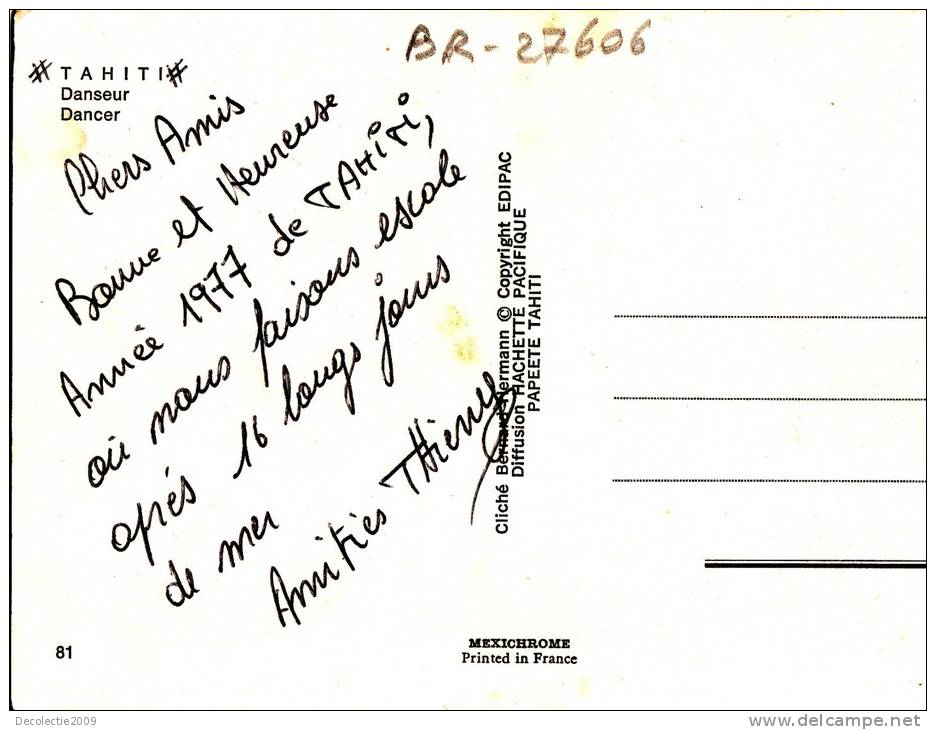 BR-27606
# TAHITI #
Danseur
Dancer
Chers Amis
Bonne et Heureuse
Année 1977 de TAHITI,
où nous faisons escale
après 16 longs jours
de mer
Amitiés Thierry
Cliché Bernard Hermann © Copyright EDIPAC
Diffusion HACHETTE PACIFIQUE
PAPEETE TAHITI
81
MEXICHROME
Printed in France
Decolectie2009
www.delcampe.net